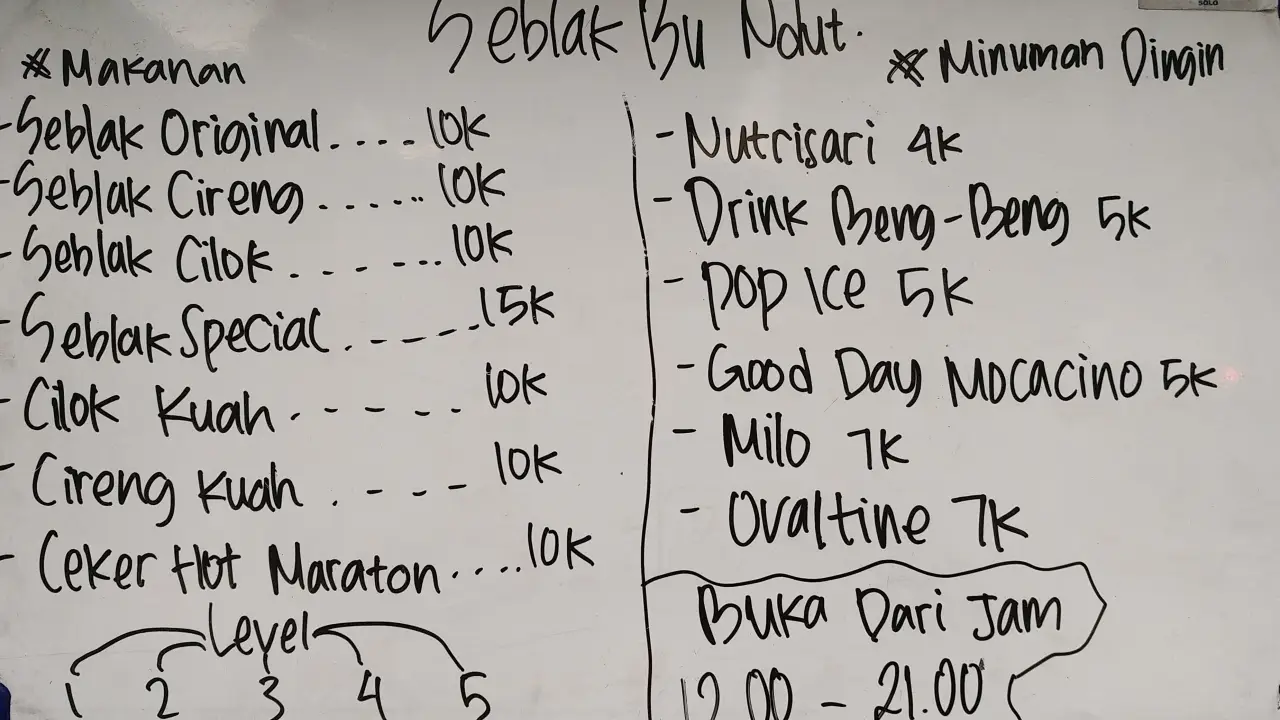 Seblak Bu Ndut.
* Makanan
- Seblak Original.... 10K
- Seblak Cireng...... 10K
- Seblak Cilok. - - - -... 10K
- Seblak Special. - - - -. 15K
- Cilok Kuah. - - - - - 10K
- Cireng Kuah. - - - 10K
- Ceker Hot Maraton.... 10K
Level
1 2 3 4 5
* Minuman Dingin
- Nutrisari 4K
- Drink Beng-Beng 5K
- Pop Ice 5K
- Good Day Mocacino 5K
- Milo 7K
- Ovaltine 7K
Buka Dari Jam
12.00 - 21.00